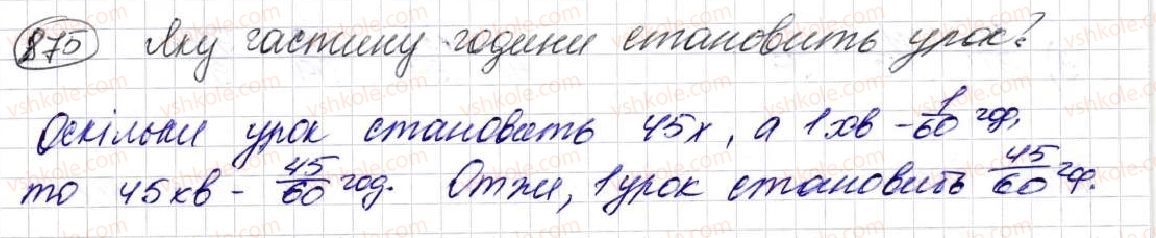 875 Яку частину години становить урок?
Оскільки урок становить 45х, а 1хв - 1/60 год,
то 45хв - 45/60 год. Отже, 1 урок становить 45/60 год.